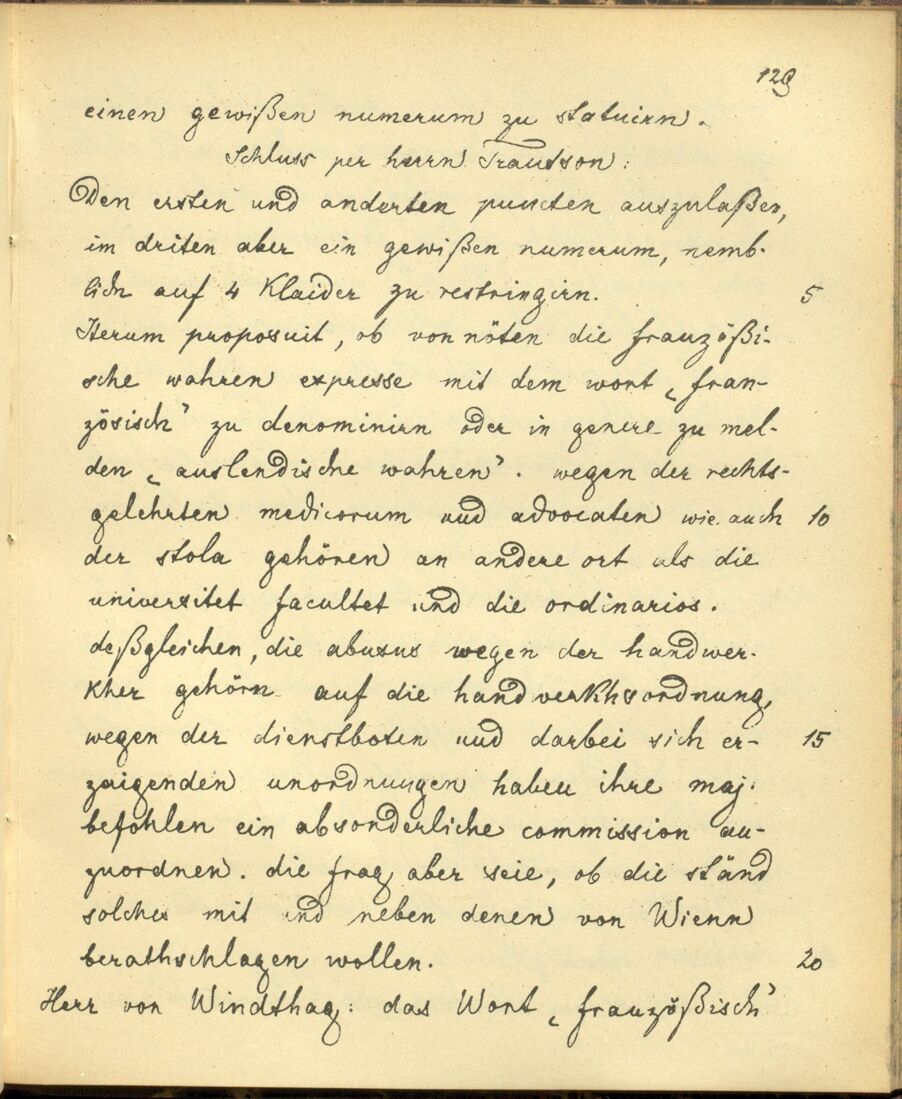 129
einen gewißen numerum zu statuirn.
Schluss per herrn Trautson:
Den ersten und anderten puncten auszulaßen,
im driten aber ein gewißen numerum, nemb-
lich auf 4 Klaider zu restringirn. 5
Iterum proposuit, ob von nöten die französi-
sche wahren expresse mit dem wort „fran-
zösisch" zu denominirn oder in genere zu mel-
den „auslendische wahren". wegen der rechts-
gelehrten medicorum und advocaten wie auch 10
der stola gehören an andere ort als die
universitet facultet und die ordinarios.
deßgleichen, die abusus wegen der handwer-
kher gehörn auf die handwerkhsordnung,
wegen der dienstboten und darbei sich er- 15
zaigenden unordnungen haben ihre maj.
befohlen ein absonderliche commission an-
zuordnen. die frag aber seie, ob die ständ
solches mit und neben denen von Wienn
berathschlagen wollen. 20
Herr von Windthag: das Wort „französisch"